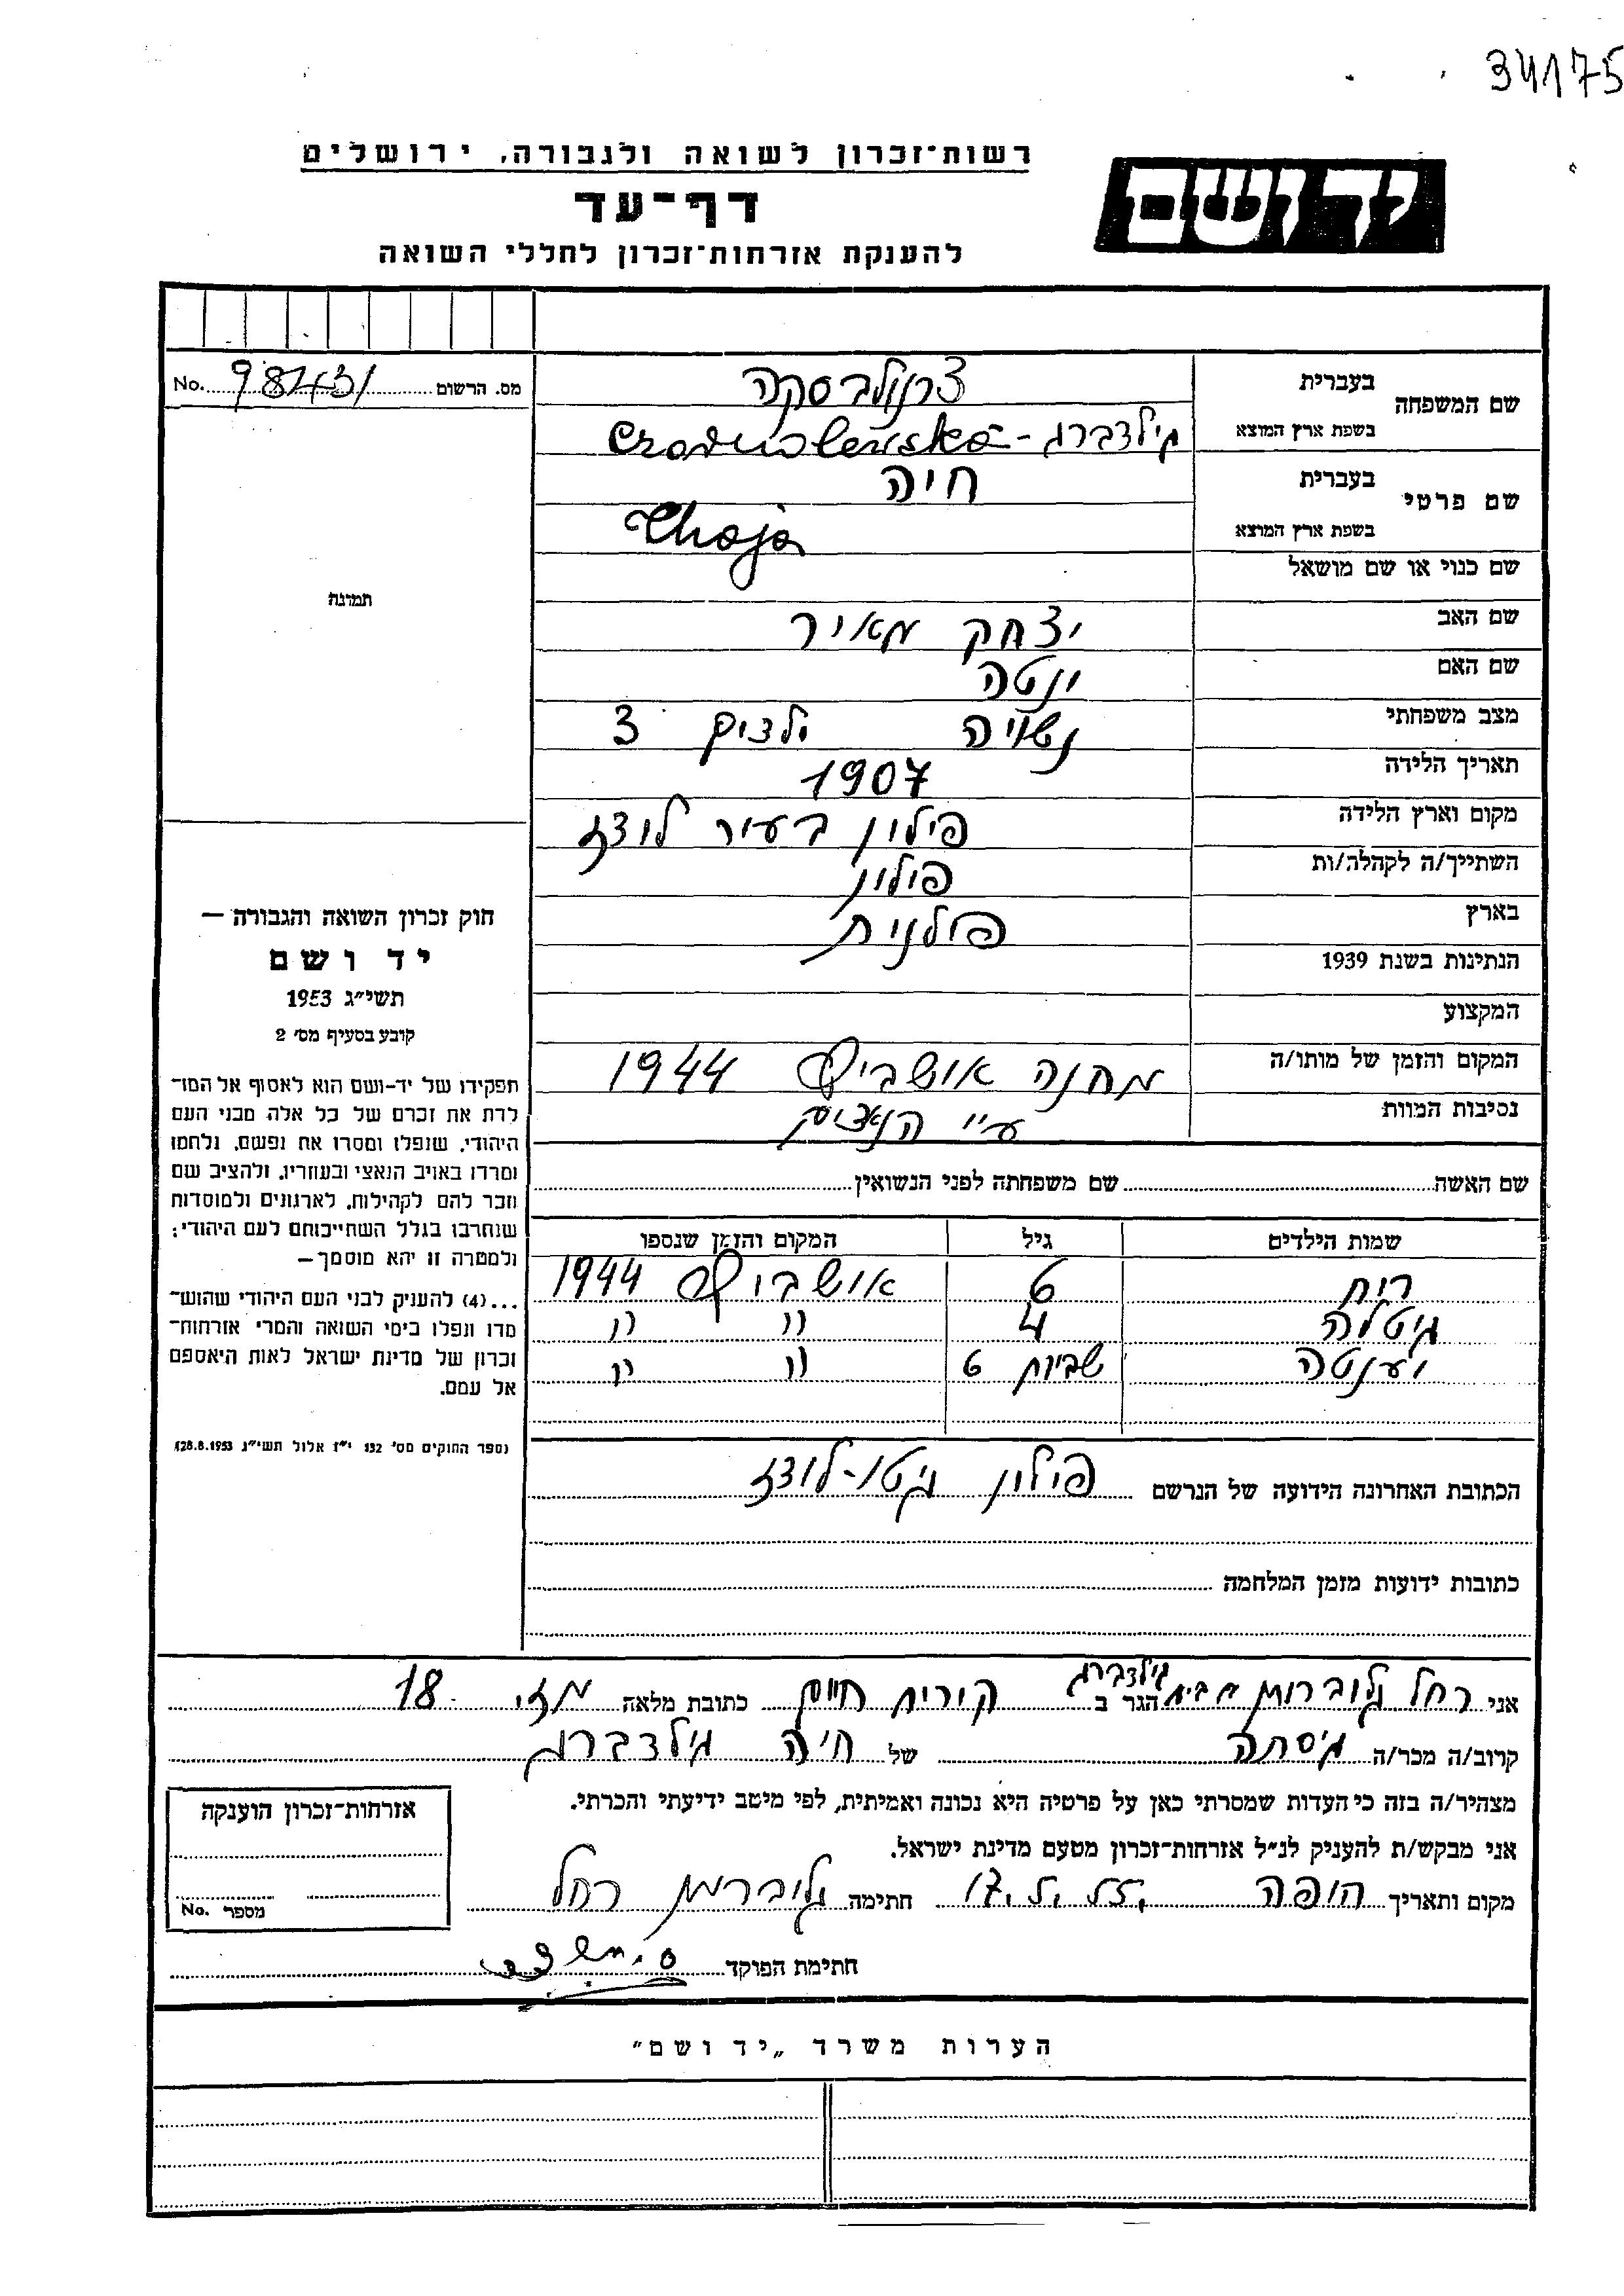 34175
רשות־זכרון לשואה ולגבורה, ירושלים
יד ושם
דף־עד
להענקת אזרחות־זכרון לחללי השואה
מס. הרשום No.
שם המשפחה
בעברית
בשפת ארץ המוצא גילדברג-
שם פרטי
בעברית חיה
בשפת ארץ המוצא Chaja
שם כנוי או שם מושאל
תמונה
שם האב יצחק מאיר
שם האם ינטה
מצב משפחתי נשויה ילדים 3
תאריך הלידה 1907
מקום וארץ הלידה פילון בעיר לודז
השתייך/ה לקהלה/ות פולון
בארץ פולנית
הנתינות בשנת 1939
המקצוע
המקום והזמן של מותו/ה מחנה אושביץ 1944
נסיבות המוות ע״י הנאצים
חוק זכרון השואה והגבורה —
יד ושם
תשי״ג 1953
קובע בסעיף מס׳ 2
תפקידו של יד-ושם הוא לאסוף אל המו־
לדת את זכרם של כל אלה מבני העם
היהודי, שנפלו ומסרו את נפשם, נלחמו
ומרדו באויב הנאצי ובעוזריו, ולהציב שם
וזכר להם לקהילות, לארגונים ולמוסדות
שנחרבו בגלל השתייכותם לעם היהודי;
ולמטרה זו יהא מוסמך—
...(4) להעניק לבני העם היהודי שהוש־
מדו ונפלו בימי השואה והמרי אזרחות־
זכרון של מדינת ישראל לאות היאספם
אל עמם.
(ספר החוקים מס׳ 132 י״ז אלול תשי״ג 28.8.1953)
שם האשה שם משפחתה לפני הנשואין
שמות הילדים גיל המקום והזמן שנספו
רות 6 אושביץ 1944
גיטלה 4 ״ ״
יענטה שביות 6 ״ ״
הכתובת האחרונה הידועה של הנרשם פילון גיטו-לודז
כתובות ידועות מזמן המלחמה
אני רחל מבית גילדברג הגר ב קירית חיים כתובת מלאה 18
קרוב/ה מכר/ה גיסתה של חיה גילדברג
מצהיר/ה בזה כי העדות שמסרתי כאן על פרטיה היא נכונה ואמיתית, לפי מיטב ידיעתי והכרתי.
אני מבקש/ת להעניק לנ״ל אזרחות־זכרון מטעם מדינת ישראל.
מקום ותאריך חיפה חתימה רחל
חתימת הפוקד
אזרחות־זכרון הוענקה
מספר No.
הערות משרד „יד ושם״